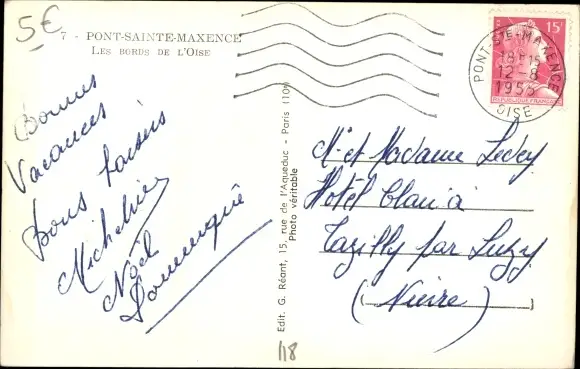 5€
7 - PONT-SAINTE-MAXENCE
LES BORDS DE L'OISE
Bonnes
Vacances
Bons baisers
Noël
Dominique
Edit. G. Réant, 15, rue de l'Aqueduc - Paris (10e)
Photo véritable
118
15F
REPUBLIQUE FRANÇAISE
PONT-STE-MAXENCE
18H15
12-8
OISE
M. et Madame
Hôtel
Tazilly par Luzy
(Nièvre)